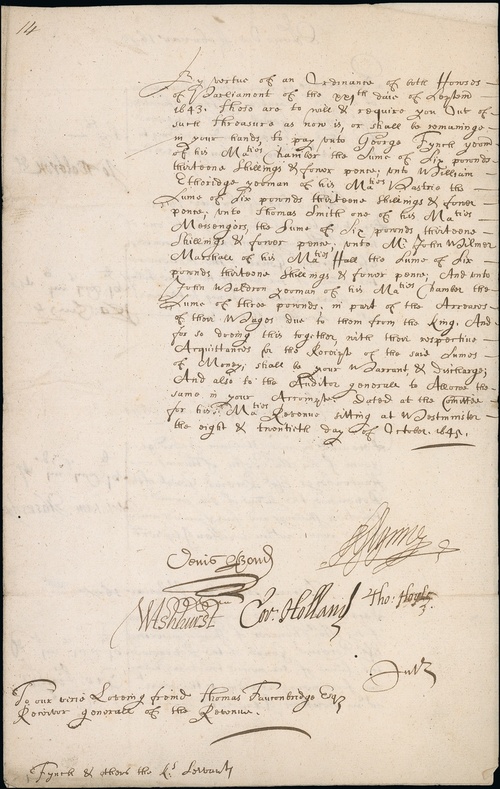 14
By vertue of an Ordinance of both Howses
of Parliament of the xxith daie of Septem
1643. These are to will & require you Out of
such Threasure as now is, or shall be remaininge
in your hands, to pay vnto George Fynch yeom
of his Maties Chamber the Sume of Six pounds
thirteene shillings & fower pence; vnto William
Etheridge yeoman of his Maties Pastrie the
Sume of Six pounds thirteene shillings & fower
pence; vnto Thomas Smith one of his Maties
Messengers, the Sume of Six pounds thirteene
shillings & fower pence; vnto Mr John Wilmer
Marshall of his Maties Hall the Sume of Six
pounds thirteene shillings & fower pence; And vnto
John Waldron yeoman of his Maties Chamber the
Sume of three pounds, in part of the Arreares
of their Wages due to them from the King. And
for so doeing this together with their respective
Acquittances for the Receipt of the said Sumes
of Money; shall be your Warrant & discharge;
And also to the Auditor generall to Allowe the
same in your Accompts. Dated at the Comittee
for his Maties Revenue sitting at Westminster
the eight & twentieth day of October. 1645.
Denis Bond
WAshhurst Cor: Holland Tho: Hoyle
To our verie Loveing freind Thomas Fauconbridge Esqr
Receivor generall of the Revenue.
Fynch & others the Ks Servants